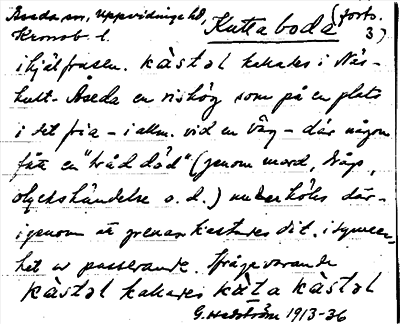 Åseda sn, Uppvidinge hd,
Kronob. l.
Kuttaboda (forts. 3)
ihjälfrusen. kåstal kallades i Näs-
hult-Åseda en rishög som på en plats
i det fria - i allm. vid en väg - där någon
fått en "bråd död" (genom mord, slags.,
olyckshändelse o. d.) underhölls där-
igenom att grenar kastades dit, i synner-
het av passerande. Ifrågavarande
kåstal kallades kåta kåstal
G. Hedström 1913-36